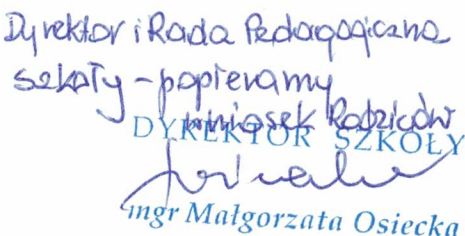 Dyrektor i Rada Pedagogiczna
szkoły - popieramy
wniosek Rodziców
DYREKTOR SZKOŁY
mgr Małgorzata Osiecka